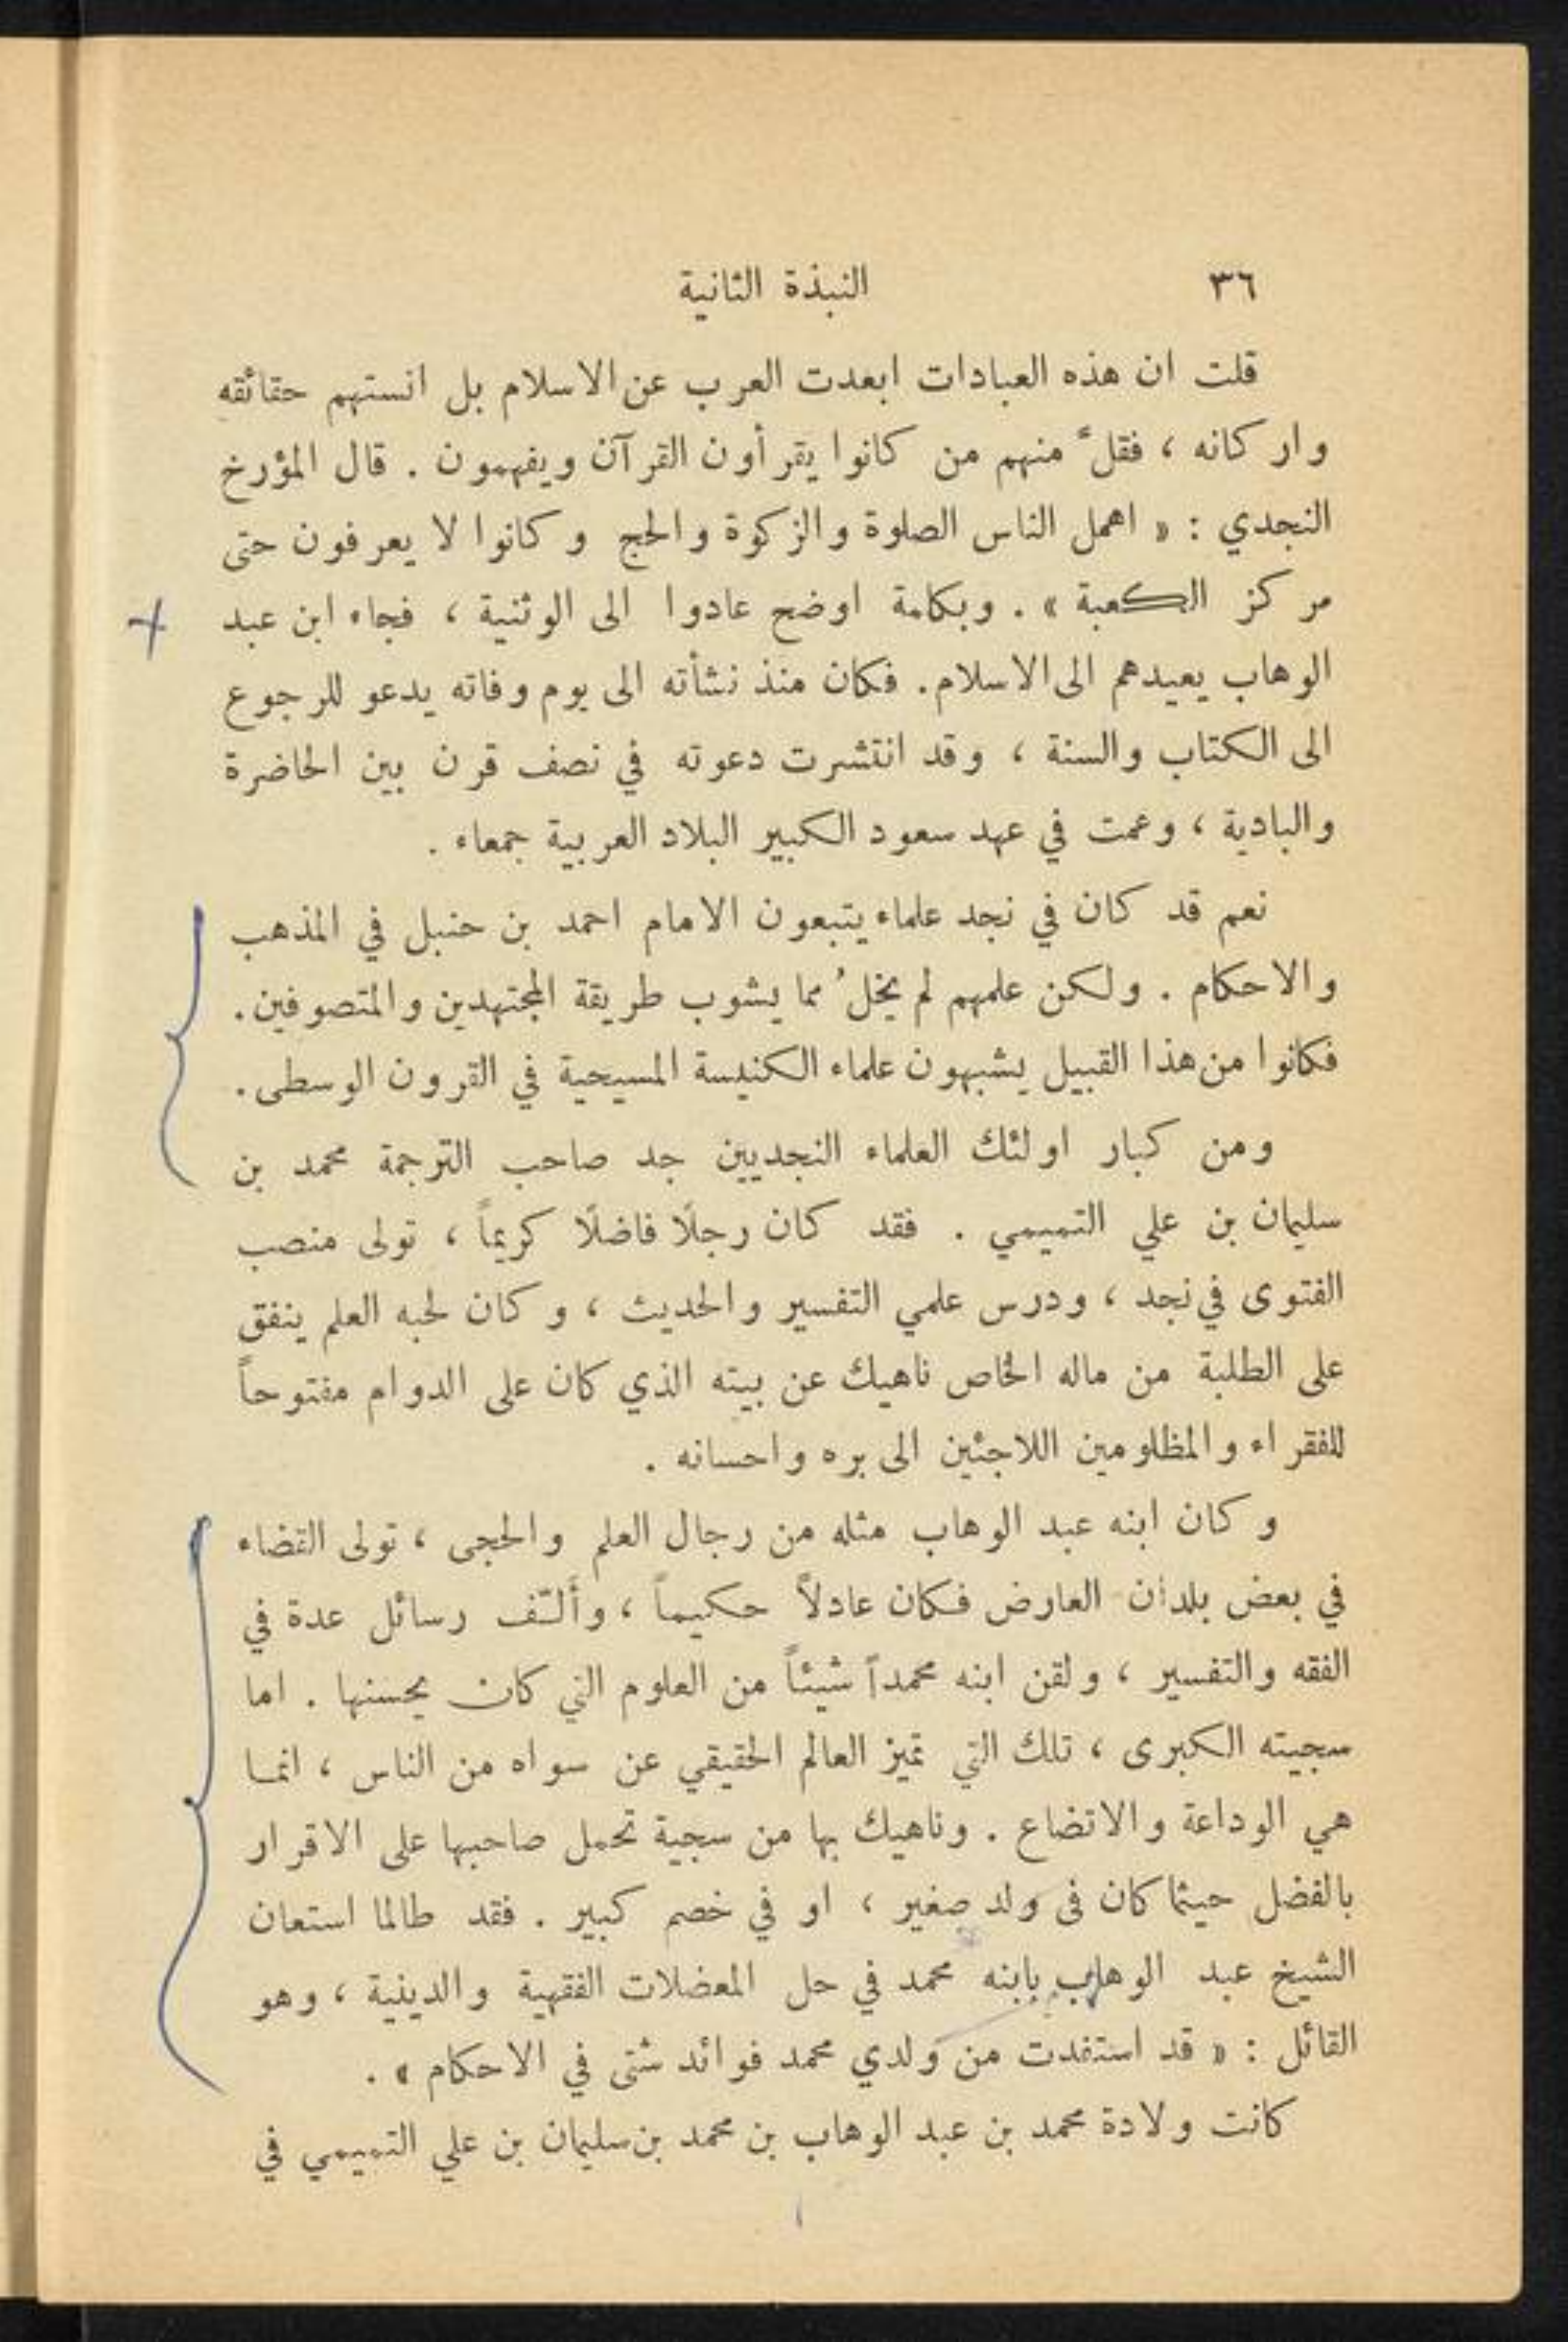 ٣٦ النبذة الثانية
قلت ان هذه العبادات ابعدت العرب عن الاسلام بل انستهم حقائقه
واركانه ، فقلّ منهم من كانوا يقرأون القرآن ويفهمون . قال المؤرخ
النجدي : « اهمل الناس الصلوة والزكوة والحج وكانوا لا يعرفون حتى
مركز الكعبة » . وبكلمة اوضح عادوا الى الوثنية ، فجاء ابن عبد
الوهاب يعيدهم الى الاسلام . فكان منذ نشأته الى يوم وفاته يدعو للرجوع
الى الكتاب والسنة ، وقد انتشرت دعوته في نصف قرن بين الحاضرة
والبادية ، وعمت في عهد سعود الكبير البلاد العربية جمعاء .
نعم قد كان في نجد علماء يتبعون الامام احمد بن حنبل في المذهب
والاحكام . ولكن علمهم لم يخلُ مما يشوب طريقة المجتهدين والمتصوفين .
فكانوا من هذا القبيل يشبهون علماء الكنيسة المسيحية في القرون الوسطى .
ومن كبار اولئك العلماء النجديين جد صاحب الترجمة محمد بن
سليمان بن علي التميمي . فقد كان رجلًا فاضلًا كريماً ، تولى منصب
الفتوى في نجد ، ودرس علمي التفسير والحديث ، وكان لحبه العلم ينفق
على الطلبة من ماله الخاص ناهيك عن بيته الذي كان على الدوام مفتوحاً
للفقراء والمظلومين اللاجئين الى بره واحسانه .
وكان ابنه عبد الوهاب مثله من رجال العلم والحجى ، تولى القضاء
في بعض بلدان العارض فكان عادلاً حكيماً ، وألّف رسائل عدة في
الفقه والتفسير ، ولقن ابنه محمداً شيئاً من العلوم التي كان يحسنها . اما
سجيته الكبرى ، تلك التي تميز العالم الحقيقي عن سواه من الناس ، انما
هي الوداعة والاتضاع . وناهيك بها من سجية تحمل صاحبها على الاقرار
بالفضل حيثما كان في ولد صغير ، او في خصم كبير . فقد طالما استعان
الشيخ عبد الوهاب بابنه محمد في حل المعضلات الفقهية والدينية ، وهو
القائل : « قد استفدت من ولدي محمد فوائد شتى في الاحكام » .
كانت ولادة محمد بن عبد الوهاب بن محمد بن سليمان بن علي التميمي في